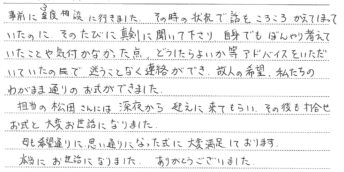 事前に直接相談に行きました。その時の状況で話をころころかえてまって
いたのに そのたびに真剣に聞いて下さり 自身でもぼんやり考えて
いたことや気付かなかった点、どうしたらよいか等アドバイスをいただ
いていたの 迷うことなく連絡ができ、故人の希望、私たちの
わがまま通りのお式ができました。
担当の松田さんには 深夜から 迎えに来てもらい、その後も打合せ
お式と大変お世話になりました。
母も希望通りに思い通りになった式に大変満足しております。
本当にお世話になりました。 ありがとうございました。